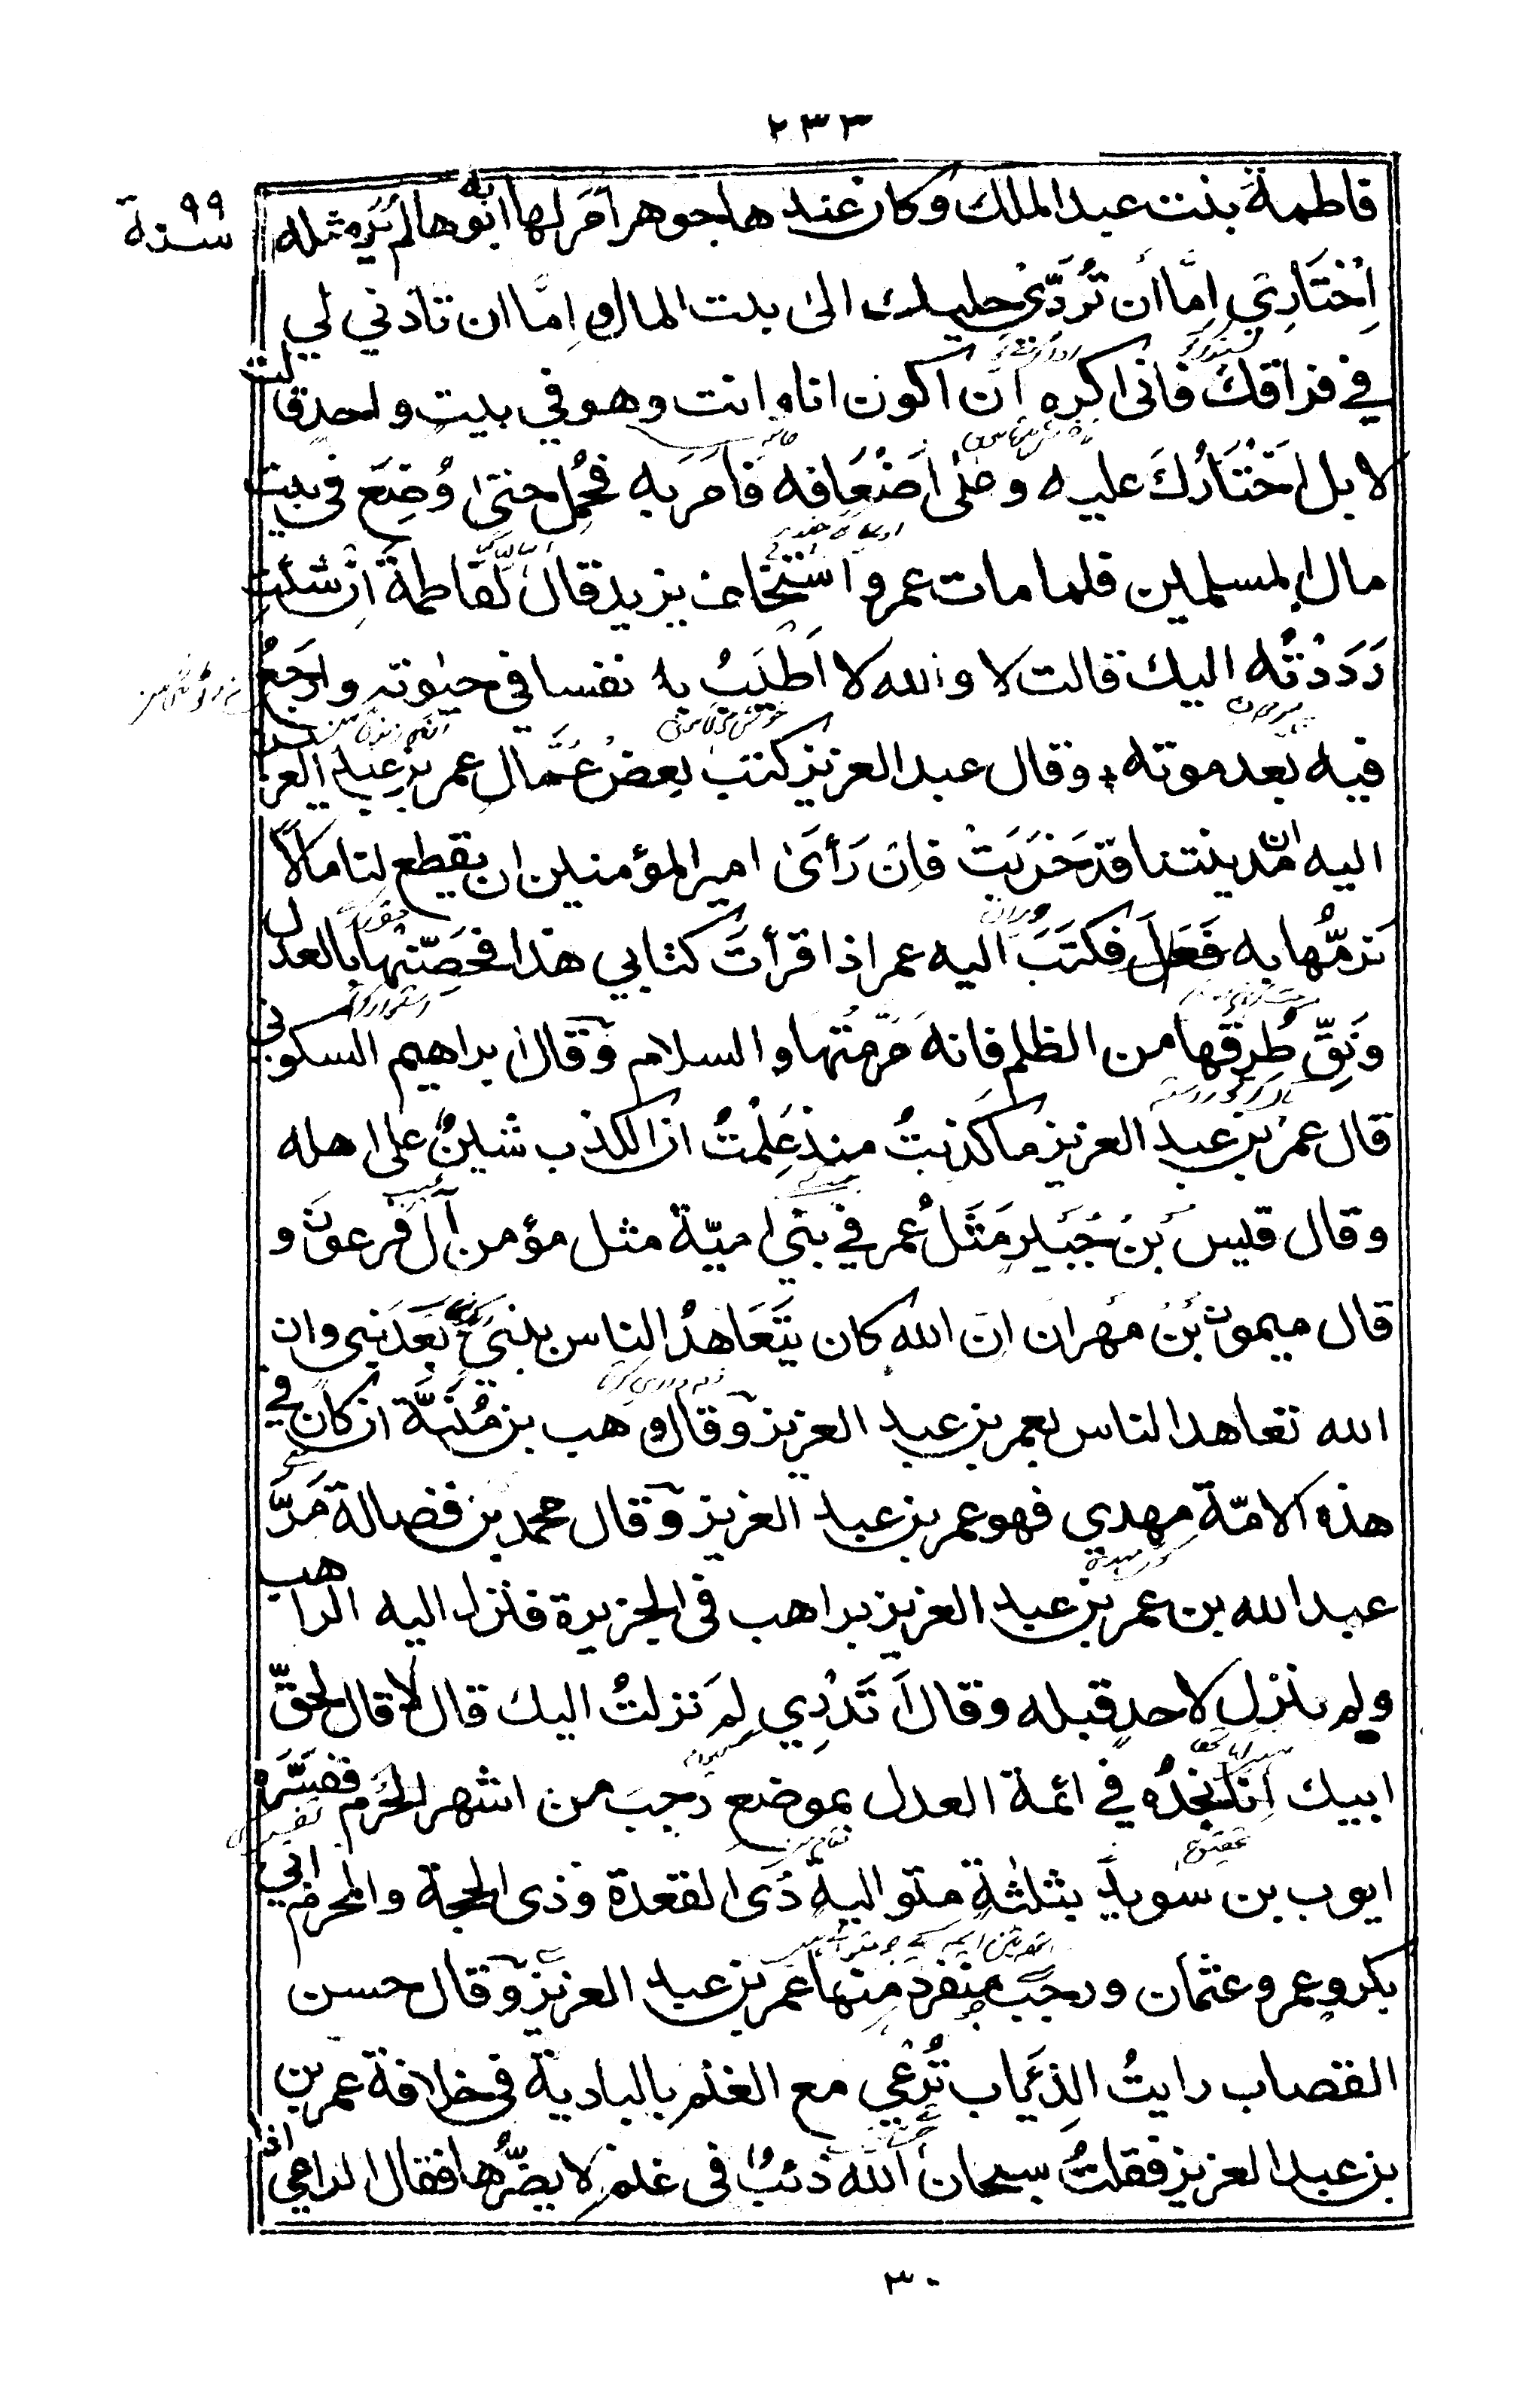 ٢٣٣
سنة ٩٩
فاطمة بنت عبد الملك وكان عندها جوهر أمَر لها به ابوها لم يُرَ مثله
اِخْتَارِي اِمَّا أن تَرُدِّيْ حليك الى بيت المال و اِمَّا ان تاذني لي
في فراقك فانى اكره ان اكون انا و انت و هو في بيت واحد قالت
لا بل اَخْتَارُكَ عليه و على اَضْعَافه فامَرَ به فحُمِل حتى وُضِعَ فى بيت
مال المسلمين فلما مات عمر و استخلف يزيد قال لفاطمة اِن شئتِ
رَدَدْتُه اليك قالت لا والله لا اَطْيَبُ به نفسا في حيوته وارجع
فيه بعد موته ÷ وقال عبد العزيز كتب بعض عُمَّال عمر بن عبد العزيز
اليه ان مدينتنا قد خَرَبَتْ فاِن رَأىٰ امير المؤمنين ان يقطع لنا مالاً
نرمُّها به فَعَلَ فكتَبَ اليه عمر اذا قرأتَ كتابي هذا فحَصِّنْها بالعدل
ونَقِّ طُرقها من الظلم فانه مَرَمَّتُها والسلام وقال ابراهيم السكوني
قال عمر بن عبد العزيز ما كذبتُ منذ عَلِمْتُ ان الكذب شينٌ على اهله
وقال قيس بن جُبَير مَثَلُ عمر في بني اميّة مثل مؤمن آل فرعون و
قال ميمون بن مهران انّ الله كان يتَعَاهدُ الناس بنبيّ بَعدَ نبي وان
الله تعاهد الناس بعمر بن عبد العزيز وقال وهب بن مُنَبّه ان كان في
هذه الامّة مهدي فهو عمر بن عبد العزيز وقال محمد بن فضالة مَرَّ
عبد الله بن عمر بن عبد العزيز براهب فى الجزيرة فنزل اليه الراهب
ولم ينزل لاحدٍ قبله وقال اَتَدْرِي لِمَ نزلتُ اليك قال لا قال لحقّ
ابيك اِنّا نجدُه في ائمة العدل بموضع رجبَ من اشهر الحُرُم ففسَّرَه
ايوب بن سويد بثلثةٍ متواليةٍ ذى القعدة وذى الحجة والمحرم ابي
بكر وعمر وعثمان ورجب منفرد منها عمر بن عبد العزيز وقال حسن
القصاب رايتُ الذِئاب تُرعى مع الغنم بالبادية فى خلافة عمر بن
بن عبد العزيز فقلتُ سبحان الله ذئبٌ فى غنم لا يضرُّها فقال الراعي اذا
٣٠